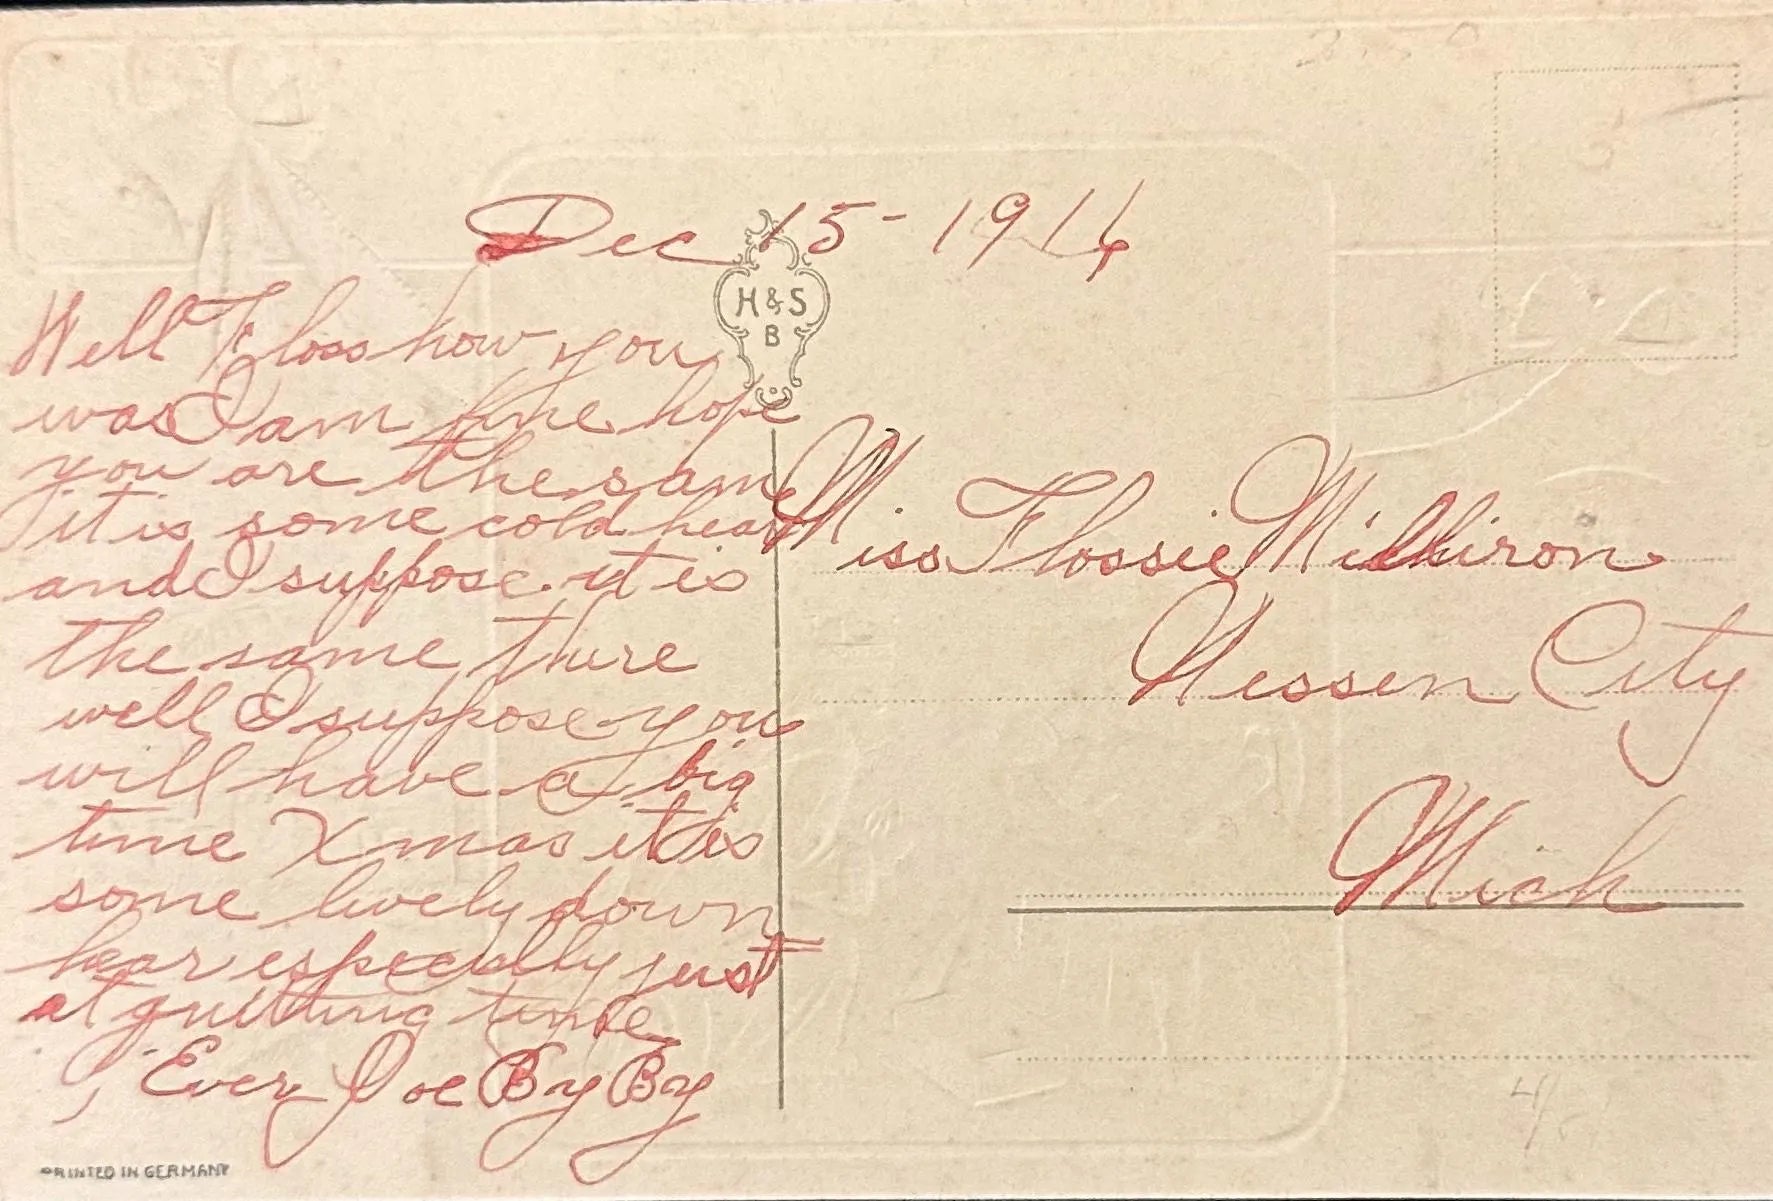 Dec 15-1914
H & S
B
Well Floss how you
was I am fine hope
you are the same
it is some cold hear
and I suppose it is
the same thure
well I suppose you
will have a big
time Xmas it is
some lively down
hear especially just
at quitting time
Ever Joe By By
Miss Flossie Milliron
Nessen City
Mich
PRINTED IN GERMANY